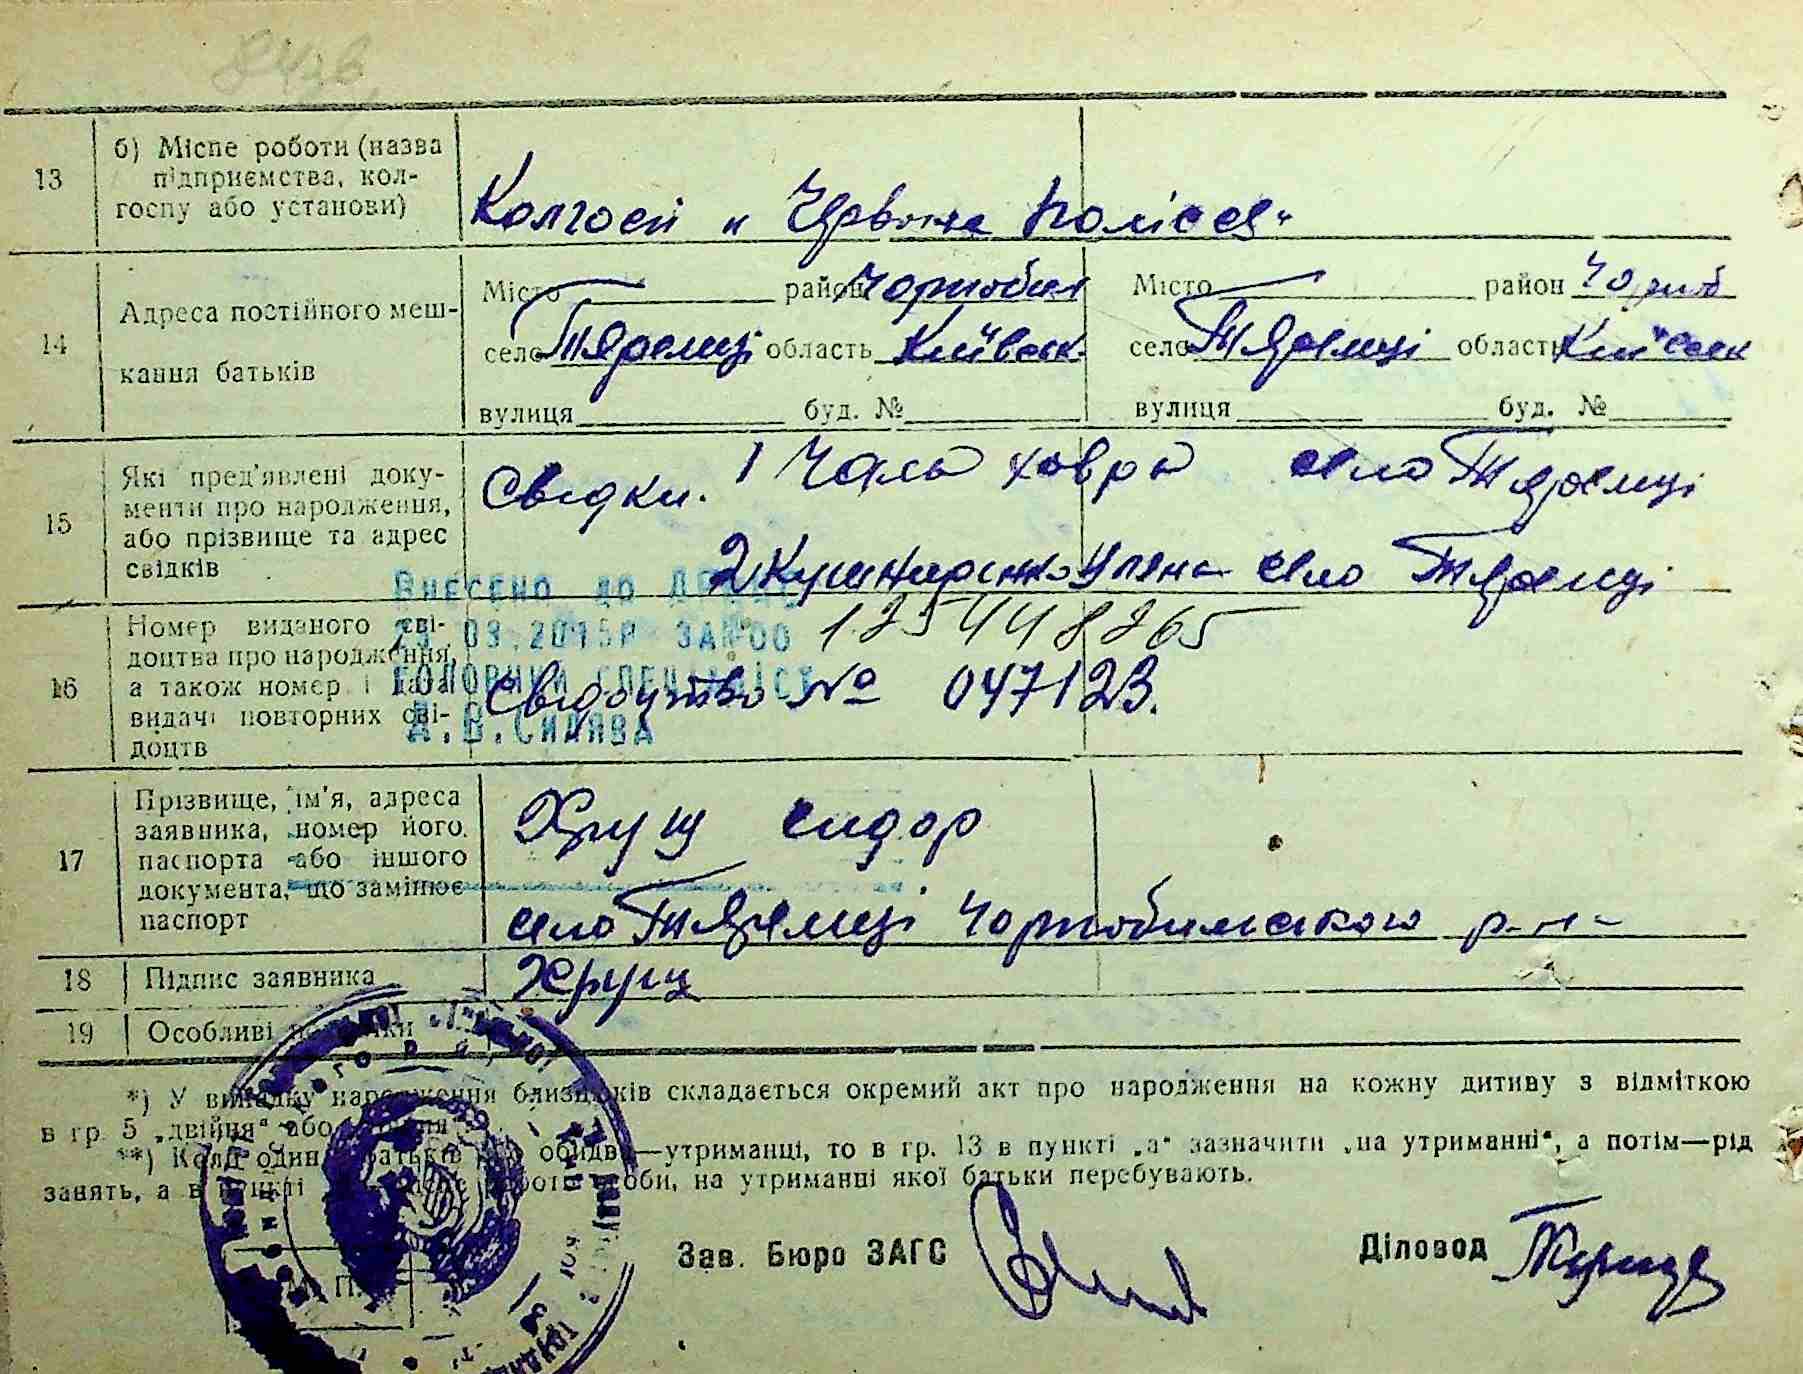 13
б) Місце роботи (назва
підприємства, кол-
госпу або установи)
Колгосп „ Червоне Полісся"
14
Адреса постійного меш-
кання батьків
Місто район Чорнобил
село Теремці область Київськ.
вулиця буд. №
Місто район Чорноб
село Теремці область Київськ
вулиця буд. №
15
Які пред'явлені доку-
менти про народження,
або прізвище та адрес
свідків
Свідки. 1 Чала Ховра село Теремці
2 Кушнаренко Уляна село Теремці
Внесено до
.03.2015р
головний спеціаліст
16
Номер виданого сві-
доцтва про народження,
а також номер і дата
видачі повторних сві-
доцтв
125448265
Свідоцтво № 047123.
17
Прізвище, ім'я, адреса
заявника, номер його
паспорта або іншого
документа, що замінює
паспорт
Хрущ Сидор
село Теремці Чорнобильського р-н
18
Підпис заявника
Хрущ
19
Особливі
*) У випадку народження близнюків складається окремий акт про народження на кожну дитину з відміткою
в гр. 5 „двійня" або
**) Коли один батьків або обидва—утриманці, то в гр. 13 в пункті „а" зазначити „на утриманні", а потім—рід
занять, а в пункті роботи особи, на утриманні якої батьки перебувають.
М. П.
Зав. Бюро ЗАГС
Діловод